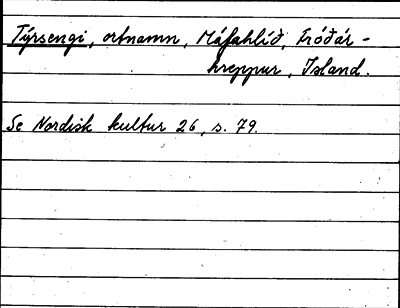 Týrsengi, ortnamn, Máfahlíð, Fróðár-
hreppur, Island.
Se Nordisk kultur 26, s. 79.